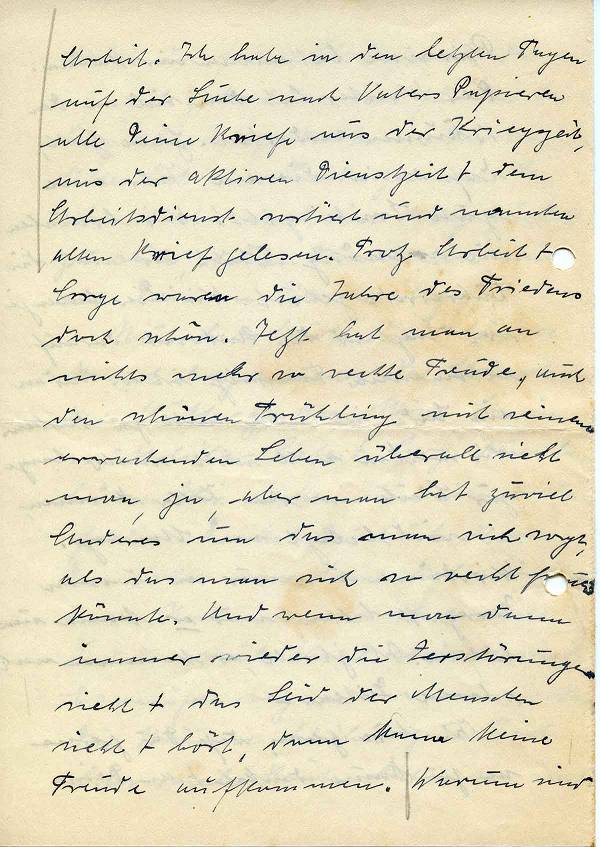 Arbeit. Ich habe in den letzten Tagen
auf der Suche nach Vaters Papieren
alle Deine Briefe aus der Kriegszeit,
aus der aktiven Dienstzeit + dem
Arbeitsdienst sortiert und manchen
alten Brief gelesen. Trotz Arbeit +
Sorge waren die Jahre des Friedens
doch schön. Jetzt hat man an
nichts mehr so rechte Freude, auch
den schönen Frühling mit seinem
erwachenden Leben überall sieht
man, ja, aber man hat zuviel
Anderes um das man sich sorgt,
als das man sich so recht freuen
könnte. Und wenn man dann
immer wieder die Zerstörungen
sieht + das Leid der Menschen
sieht + hört, dann kann keine
Freude aufkommen. Warum sind